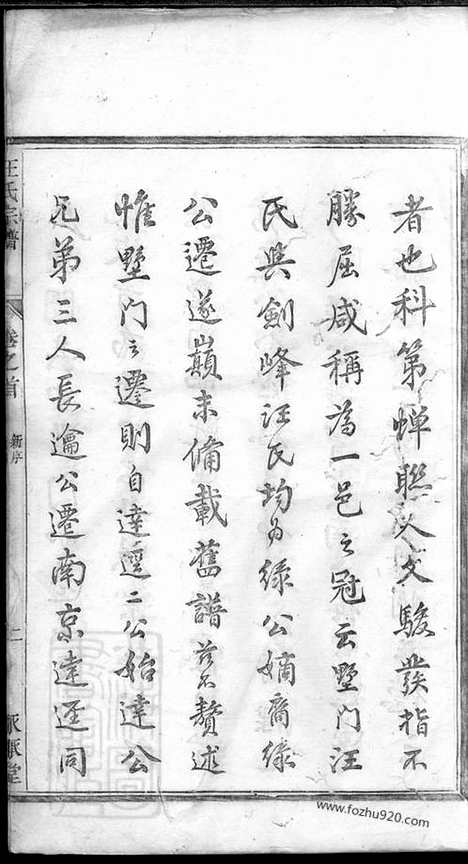 者也科第蟬聯人文駿發指不
勝屈咸稱為一邑之冠云墅门汪
氏與劍峰汪氏均为綠公嫡裔綠
公遷遂巔末俻載舊譜茲不贅述
惟墅门之遷則自達遥二公始達公
兄弟三人長逾公遷南京達遥同
汪氏宗譜 卷之首 新序 二
www.fozhu920.com